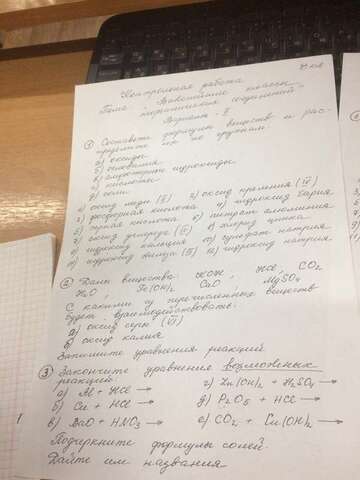 8 кл
Контрольная работа
Тема: "Важнейшие классы
неорганических соединений"
Вариант - II
① Составьте формулы веществ и рас-
пределите их по группам:
а) оксиды
б) основания
в) амфотерные гидроксиды
г) кислоты
д) соли
оксид меди (II) оксид кремния (IV)
фосфорная кислота гидроксид бария
серная кислота нитрат алюминия
оксид углерода (II) хлорид цинка
гидроксид кальция сульфат натрия
гидроксид железа гидроксид натрия
② Даны вещества: KOH, HCl, CO2
H2O, Fe(OH)2, CaO, MgSO4
С какими из перечисленных веществ
будет взаимодействовать:
а) оксид серы (VI)
б) оксид калия
Запишите уравнения реакций
③ Закончите уравнения возможных
реакций:
а) Al + HCl → г) Zn(OH)2 + H2SO4 →
б) Cu + HCl → д) P2O5 + HCl →
в) BaO + HNO3 → е) CO2 + Cu(OH)2 →
Подчеркните формулы солей.
Дайте им названия